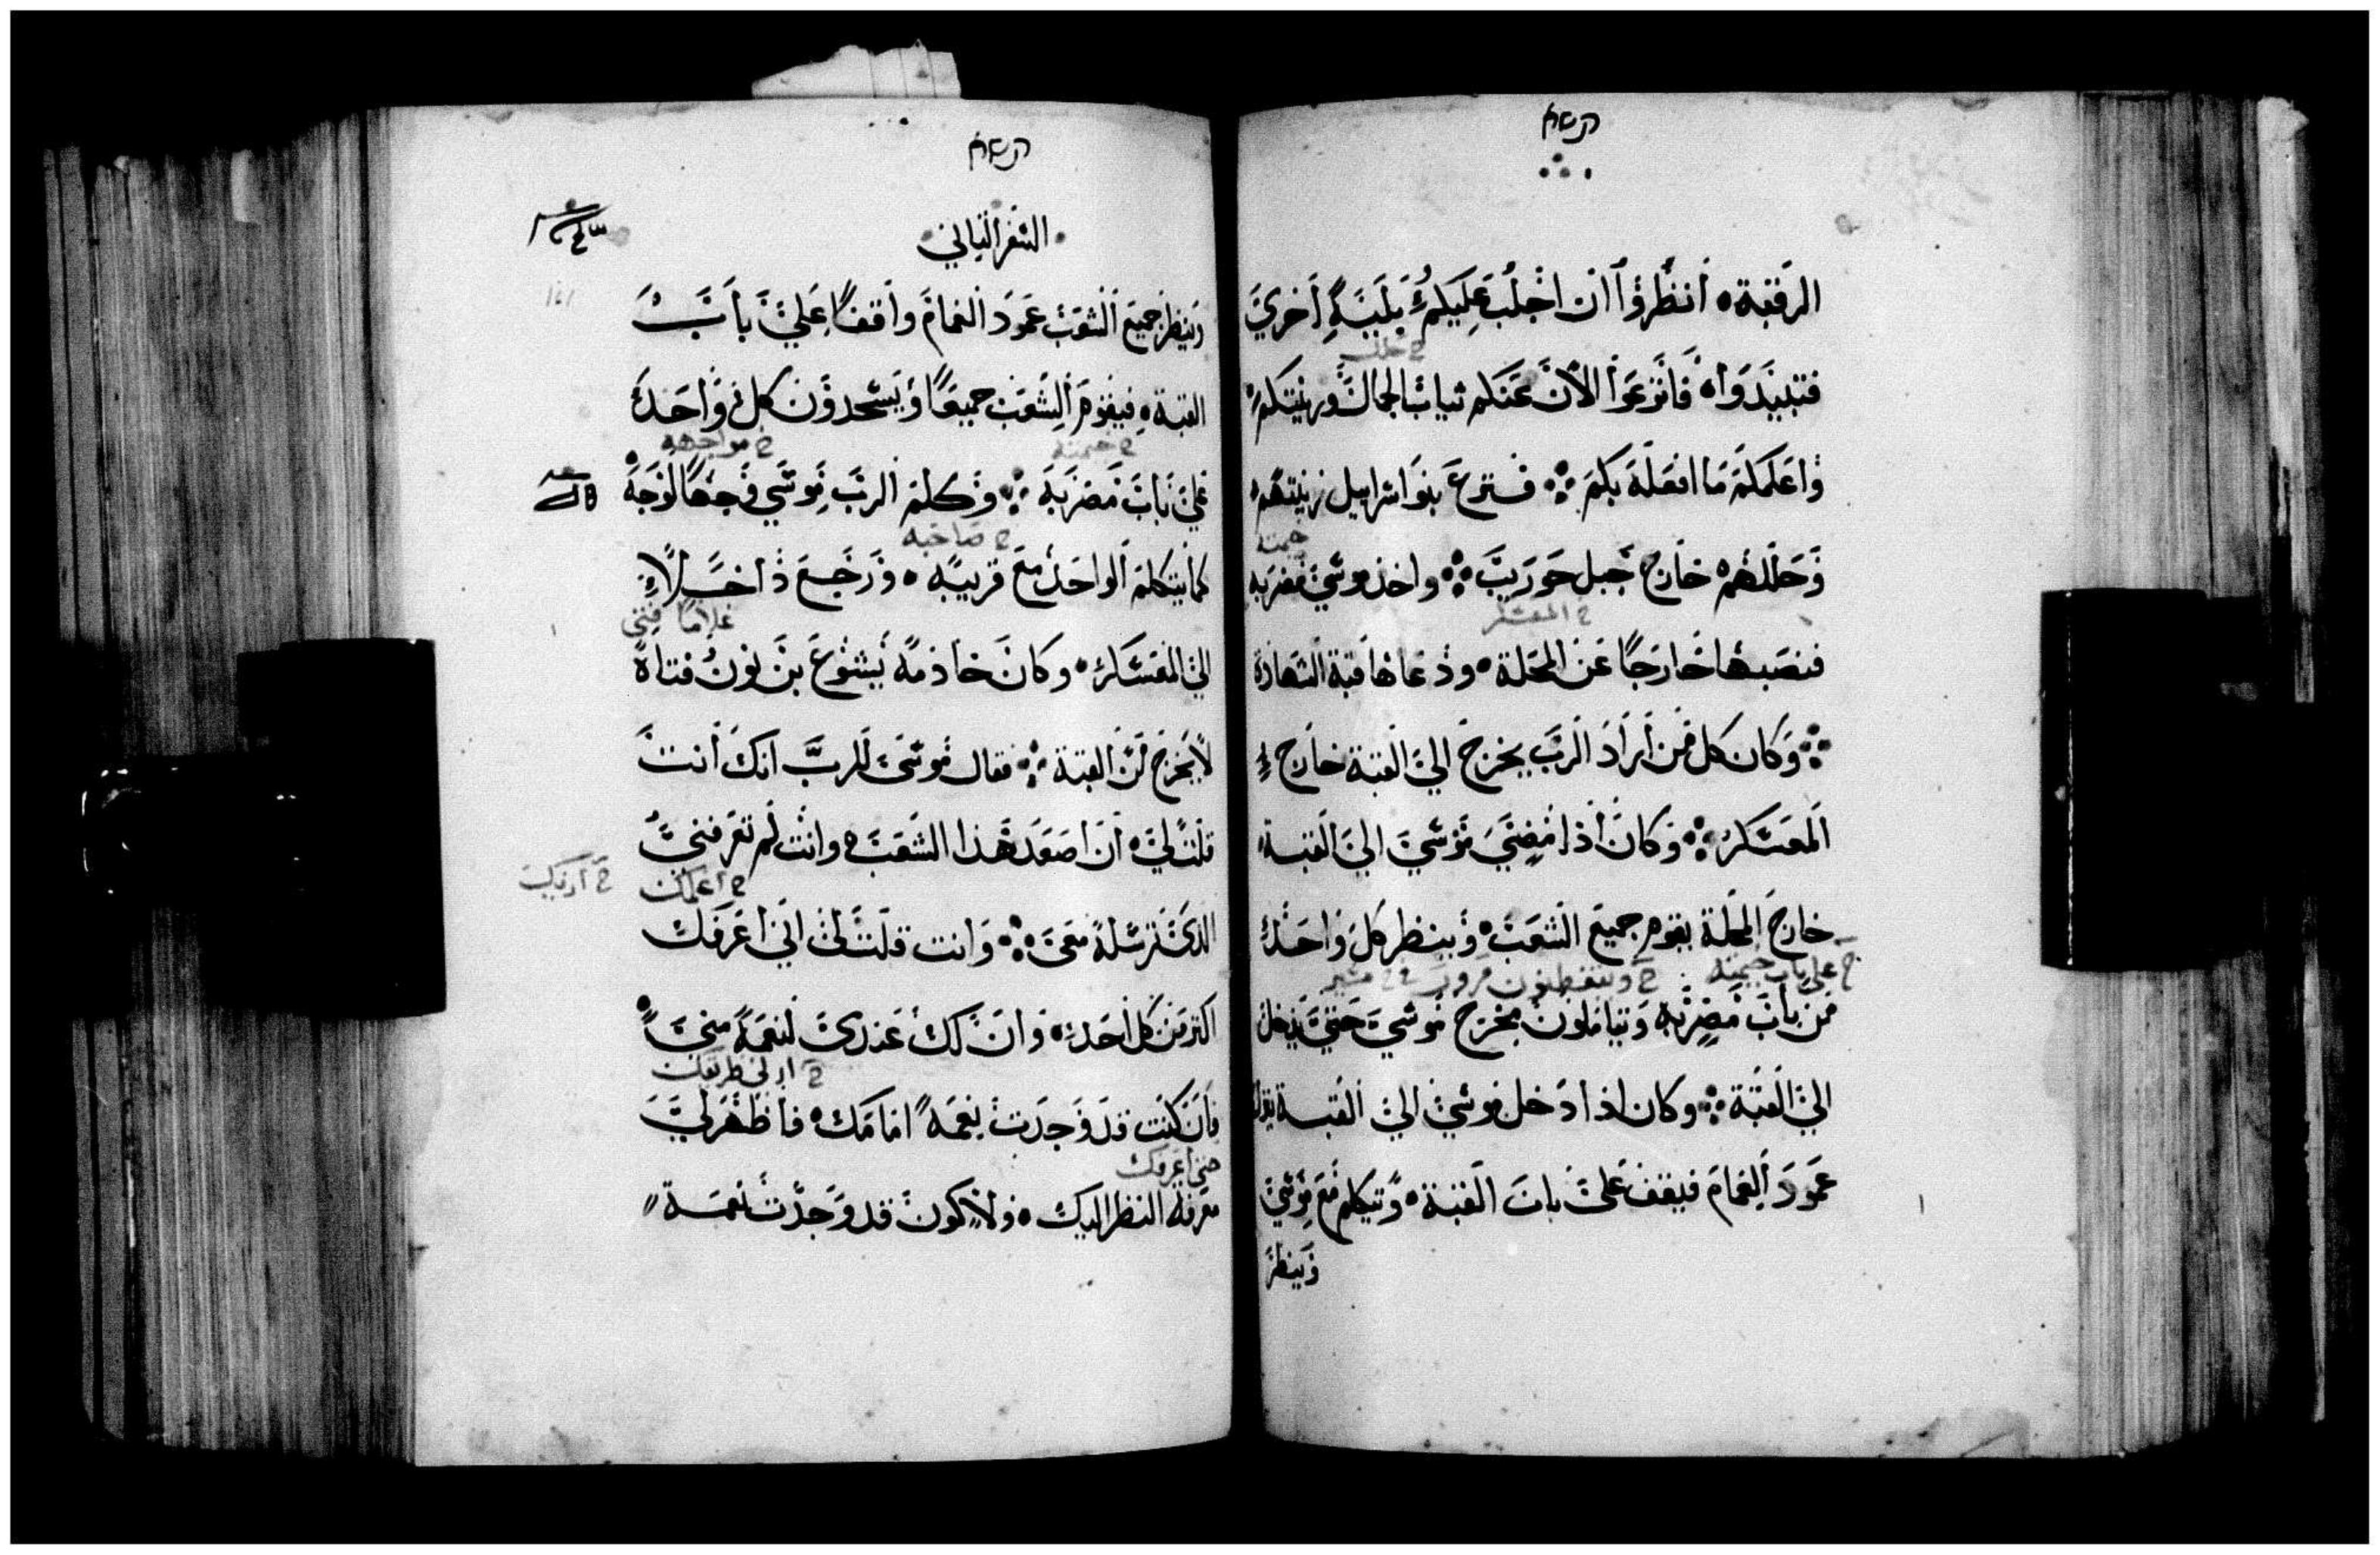 الرقبة، أنظروا ان اجلب عليكم بلية أخري
ح حلل
فتبيدوا، فانزعوا الآن عنكم ثياب الجمال وزينتكم
واعلمكم ما افعله بكم ∴ فنزع بنوا اسرايل زينتهم
وحللهم خارج جبل حوريب ∴ واخذ موسي مضربه
خيمته
ح المعسكر
فنصبها خارجا عن المحلة، ودعاها قبة الشهادة
∴ وكان كل من أراد الرب يخرج الي القبة خارج
المعسكر ∴ وكان أذا مضي موسي الي القبة
خارج المحلة يقوم جميع الشعب، وينظر كل واحد
ح علي باب خيمته ح ويتفطنون مرور
من باب مضربه ويتاملون مخرج موسي حتي يدخل
الي القبة ∴ وكان اذا دخل موسي الي القبة ينزل
عمود الغمام فيقف علي باب القبة، ويتكلم مع موسي
وينظر
السفر الثاني
وينظر جميع الشعب عمود الغمام واقفا علي باب
القبة، فيقوم الشعب جميعا ويسجدون كل واحد
ح خيمته ح مواجهه
علي باب مضربه ∴ وكلم الرب موسي وجها لوجه
ح صاحبه
كما يتكلم الواحد مع قريبه، ورجع داخلا
غلاما فتي
الي المعسكر، وكان خادمه يشوع بن نون فتاه
لا يخرج من القبة ∴ فقال موسي للرب انك أنت
قلت لي، أن اصعد هذا الشعب، وانت لم تعرفني
ح اعلمك
الذي ترسله معي ∴ وانت قلت لي اني اعرفك
اكثر من كل أحد، وان لك عندي لنعمة مني
ح ارني طريقك
فأن كنت قد وجدت نعمة امامك، فاظهر لي
حتي أعرفك
معرفة النظر اليك، ولأكون قد وجدت نعمة